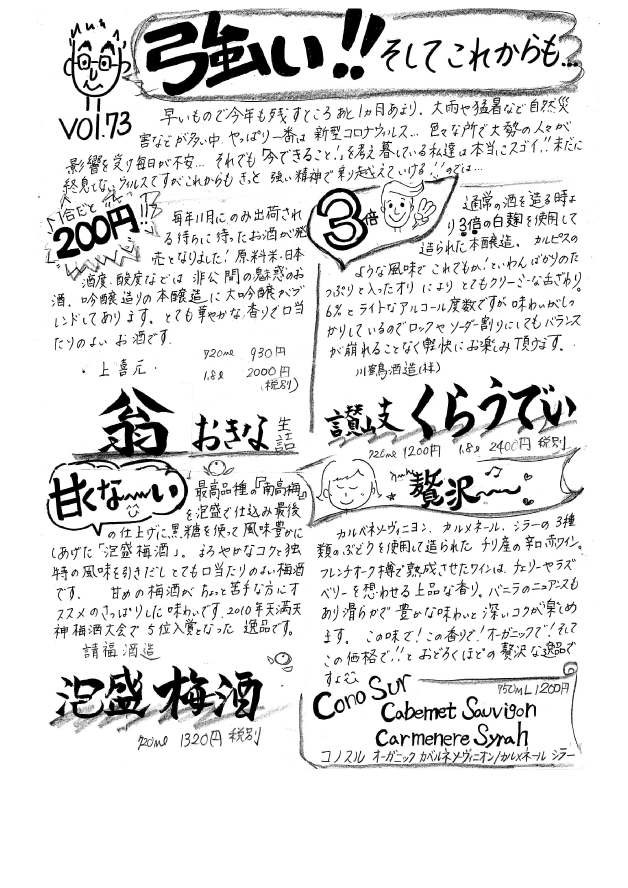 強い!! そしてこれからも...
VOl.73
早いもので今年も残すところあと1ヵ月あまり、大雨や猛暑など自然災
害などが多い中 やっぱり一番は 新型コロナウィルス... 色々な所で大勢の人々が
影響を受け毎日が不安... それでも「今できること!」を考え暮している私達は本当にスゴイ!!未だに
終息しないウィルスですがこれからも きっと 強い精神で乗り越えていける!!のでは...
1合だと
200円!!
毎年11月にのみ出荷され
る待ちに待ったお酒が発
売となりました! 原料米・日本
酒度・酸度などは 非公開の魅惑のお
酒。吟醸造りの本醸造に大吟醸がブ
レンドしてあります。とても華やかな香りで口当
たりのよい お酒です。
720ml 930円
・上喜元・
1.8l 2000円
(税別)
翁 おきな 生詰
3倍
通常の酒を造る時よ
り3倍の白麹を使用して
造られた本醸造。カルピスの
ような風味で これでもか!といわんばかりのた
っぷりと入ったオリ により とてもクリーミーな舌ざわり。
6%とライトなアルコール度数ですが 味わいがしっ
かりしているのでロックやソーダー割りにしてもバランス
が崩れることなく軽快にお楽しみ頂けます。
川鶴酒造(株)
讃岐くらうでぃ
720ml 1200円 1.8l 2400円 税別
甘くな〜い
最高品種の『南高梅』
を泡盛で仕込み最後
の仕上げに、黒糖を使って風味豊かに
しあげた「泡盛梅酒」。まろやかなコクと独
特の風味を引きだしとても口当たりのよい梅酒
です。 甘めの梅酒が ちょっと苦手な方にオ
ススメのさっぱりした味わいです。2010年天満天
神梅酒大会で 5位入賞となった 逸品です。
請福酒造
泡盛 梅酒
720ml 1320円 税別
贅沢〜
カルベネソーヴィニヨン、カルメネール、シラーの3種
類のぶどうを使用して造られた チリ産の辛口赤ワイン。
フレンチオーク樽で熟成させたワインは、チェリーやラズ
ベリーを想わせる上品な香り。バニラのニュアンスも
あり滑らかで 豊かな味わいと深いコクが楽しめ
ます。 この味で!この香りで!オーガニックで!そして
この価格で!!と おどろくほどの 贅沢な逸品で
す
750mL 1200円
Cono Sur
Cabernet Sauvignon
Carmenere Syrah
コノスル オーガニック カベルネソーヴィニオン/カルメネール シラー